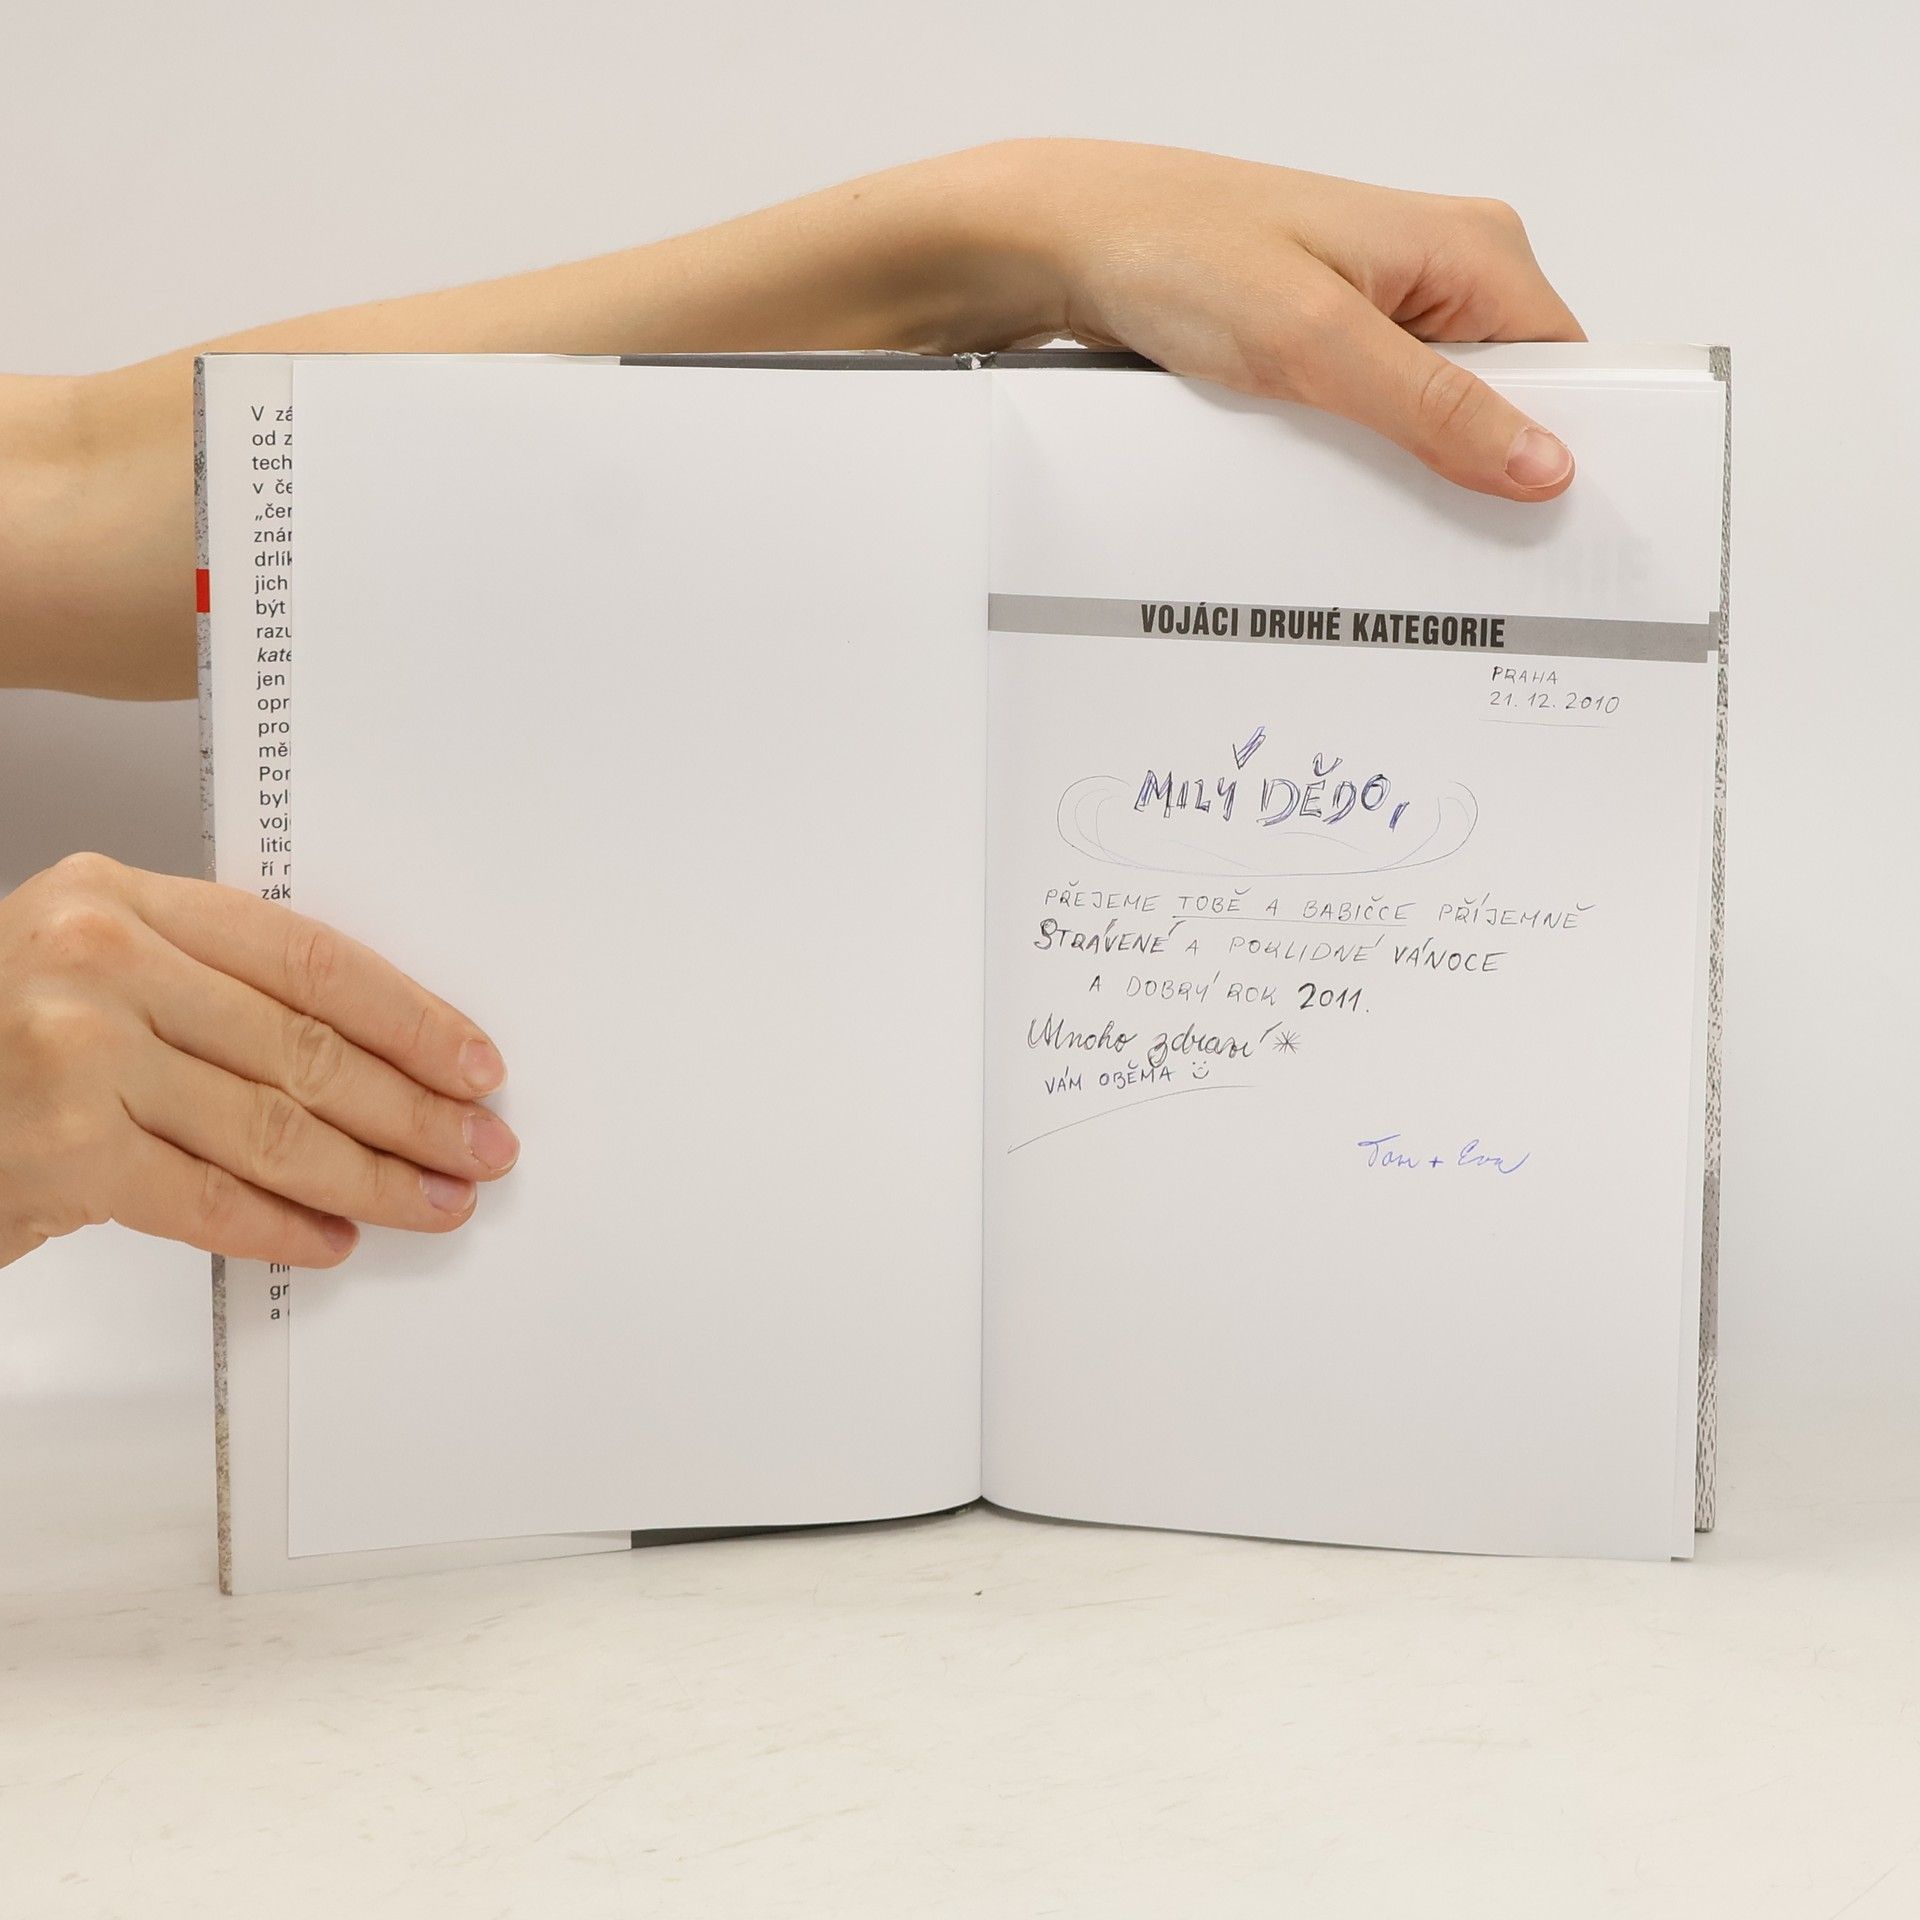 V zá
od z
tech
v če
„čer
znár
drlík
jich
být
razu
kate
jen
opr
pro
měl
Por
byl
voj
litic
ří r
zák
gr
a
VOJÁCI DRUHÉ KATEGORIE
PRAHA
21. 12. 2010
MILÝ DĚDO,
PŘEJEME TOBĚ A BABIČCE PŘÍJEMNĚ
STRÁVENÉ A POKLIDNÉ VÁNOCE
A DOBRÝ ROK 2011.
Mnoho zdraví
VÁM OBĚMA
+ Eva